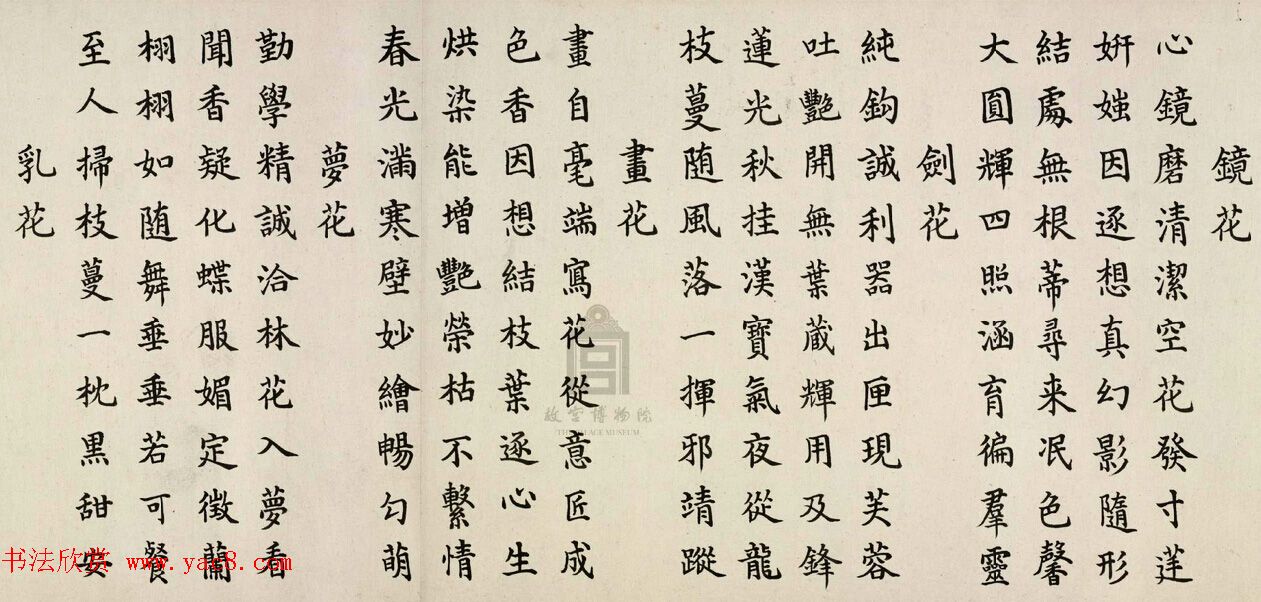 鏡花
心鏡磨清潔空花發寸莛
妍媸因逐想真幻影隨形
結處無根蒂尋来泯色馨
大圓輝四照涵育徧羣靈
劍花
純鈎誠利器出匣現芙蓉
吐艷開無葉蔵輝用及鋒
蓮光秋挂漢寶氣夜從龍
枝蔓随風落一揮邪靖蹤
畫花
畫自毫端寫花從意匠成
色香因想結枝葉逐心生
烘染能增艷榮枯不繫情
春光滿寒壁妙繪暢勾萌
夢花
勤學精誠洽林花入夢看
聞香疑化蝶服媚定徵蘭
栩栩如随舞垂垂若可餐
至人掃枝蔓一枕黑甜安
乳花
故宫博物院
THE PALACE MUSEUM
书法欣赏 www.yac8.com